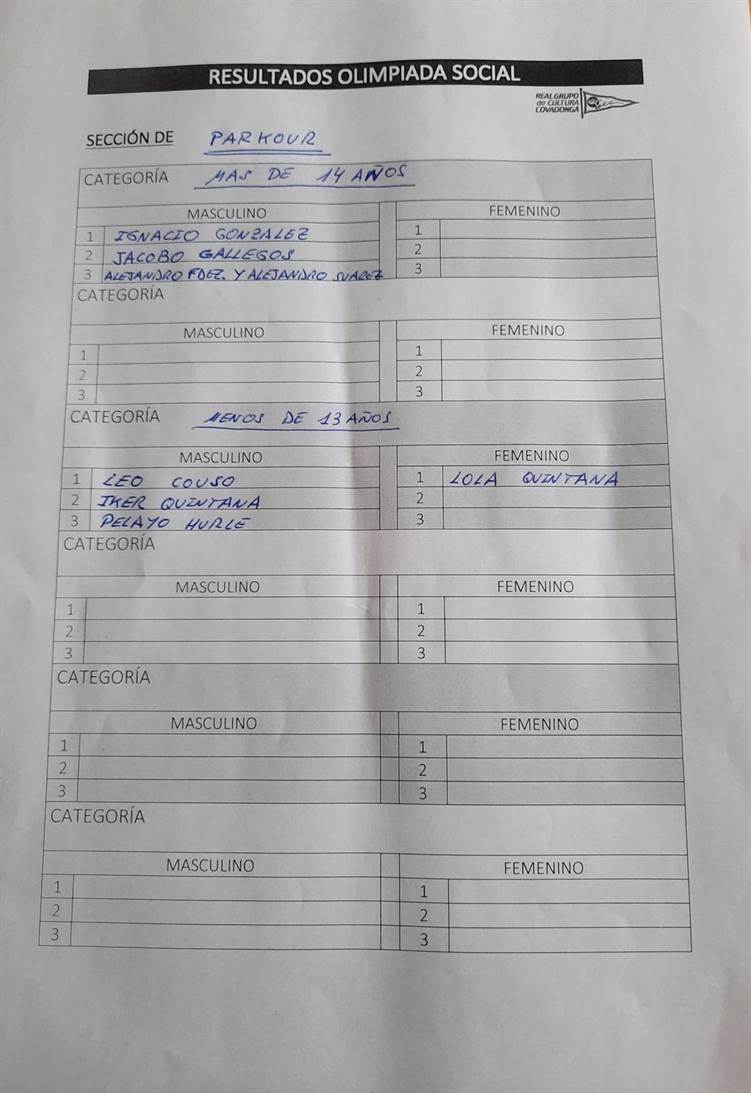 RESULTADOS OLIMPIADA SOCIAL
REAL GRUPO
de CULTURA
COVADONGA
SECCIÓN DE PARKOUR
CATEGORÍA MAS DE 14 AÑOS
MASCULINO FEMENINO
1 IGNACIO GONZALEZ 1
2 JACOBO GALLEGOS 2
3 ALEJANDRO FDEZ. Y ALEJANDRO SUAREZ 3
CATEGORÍA
MASCULINO FEMENINO
1 1
2 2
3 3
CATEGORÍA MENOS DE 13 AÑOS
MASCULINO FEMENINO
1 LEO COUSO 1 LOLA QUINTANA
2 IKER QUINTANA 2
3 PELAYO HURLÉ 3
CATEGORÍA
MASCULINO FEMENINO
1 1
2 2
3 3
CATEGORÍA
MASCULINO FEMENINO
1 1
2 2
3 3
CATEGORÍA
MASCULINO FEMENINO
1 1
2 2
3 3